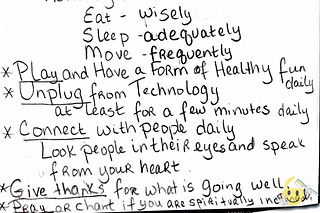 Eat - wisely
Sleep - adequately
Move - frequently
* Play and Have a form of Healthy fun
daily
* Unplug from Technology
at least for a few minutes daily
* Connect with people daily
Look people in their eyes and speak
from your heart.
* Give thanks for what is going well
* Pray or chant if you are spiritually